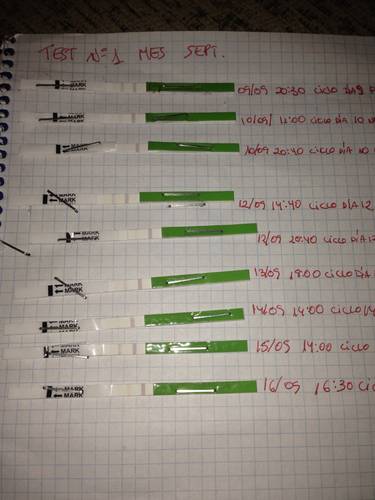 TEST Nº 1 MES SEPT.
MARK
09/09 20:30 CICLO DÍA 9
MARK
10/09/ 11:00 CICLO DÍA 10
MARK
10/09 20:40 CICLO DÍA 10
MARK
12/09 14:40 CICLO DÍA 12
MARK
12/09 20:40 CICLO DÍA
MARK
13/09 18:00 CICLO DÍA
MARK
14/09 14:00 CICLO
MARK
15/09 14:00 CICLO
MARK
16/09 16:30